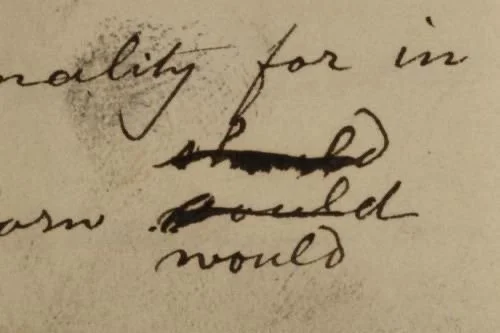 nality for in
should
orn could
would